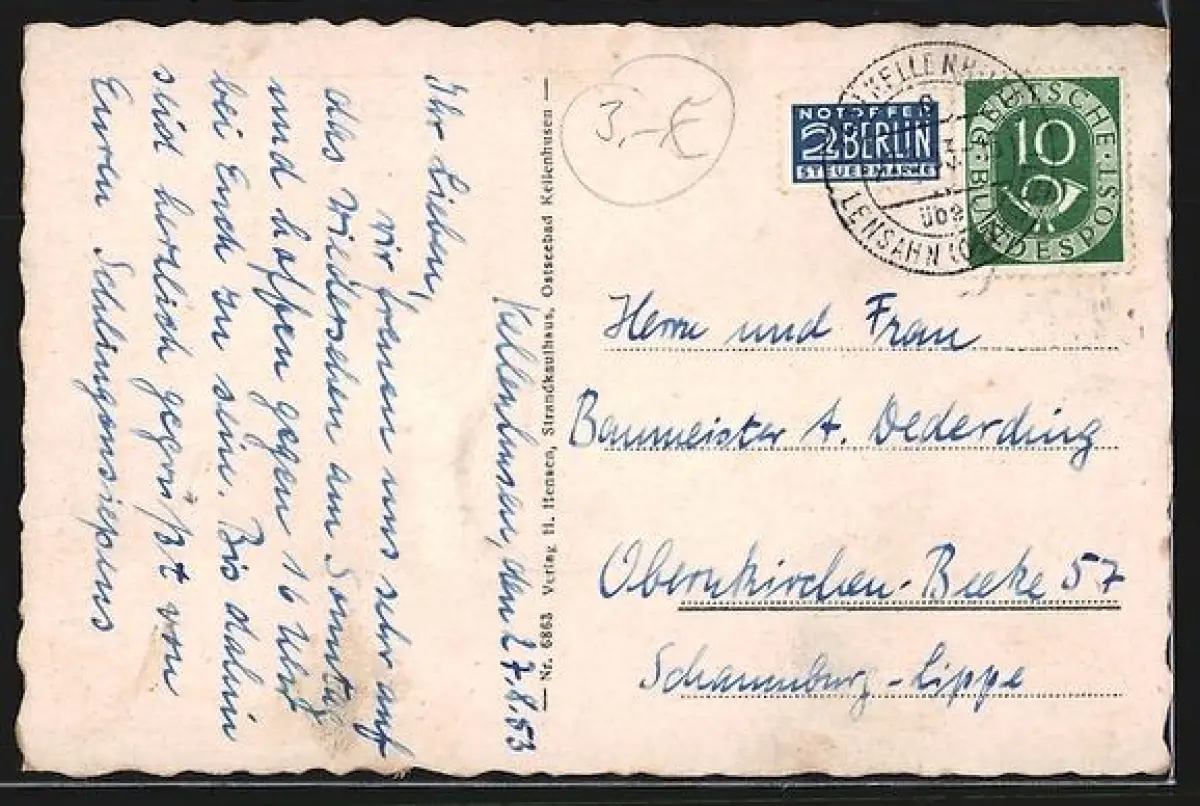 Kellenhusen, den 27.8.53
Ihr Lieben,
wir freuen uns sehr auf
das Wiedersehen am Sonntag
und hoffen gegen 16 Uhr
bei Euch zu sein. Bis dahin
seid herzlich gegrüßt von
Euren
Nr. 6863 Verlag H. Hensen, Strandkaufhaus, Ostseebad Kellenhusen
3,-€
NOTOPFER
2 BERLIN
STEUERMARKE
KELLENH
über
LENSAHN (
DEUTSCHE BUNDESPOST
10
Herrn und Frau
Baumeister A. Dederding
Obernkirchen-Beeke 57
Schaumburg-Lippe